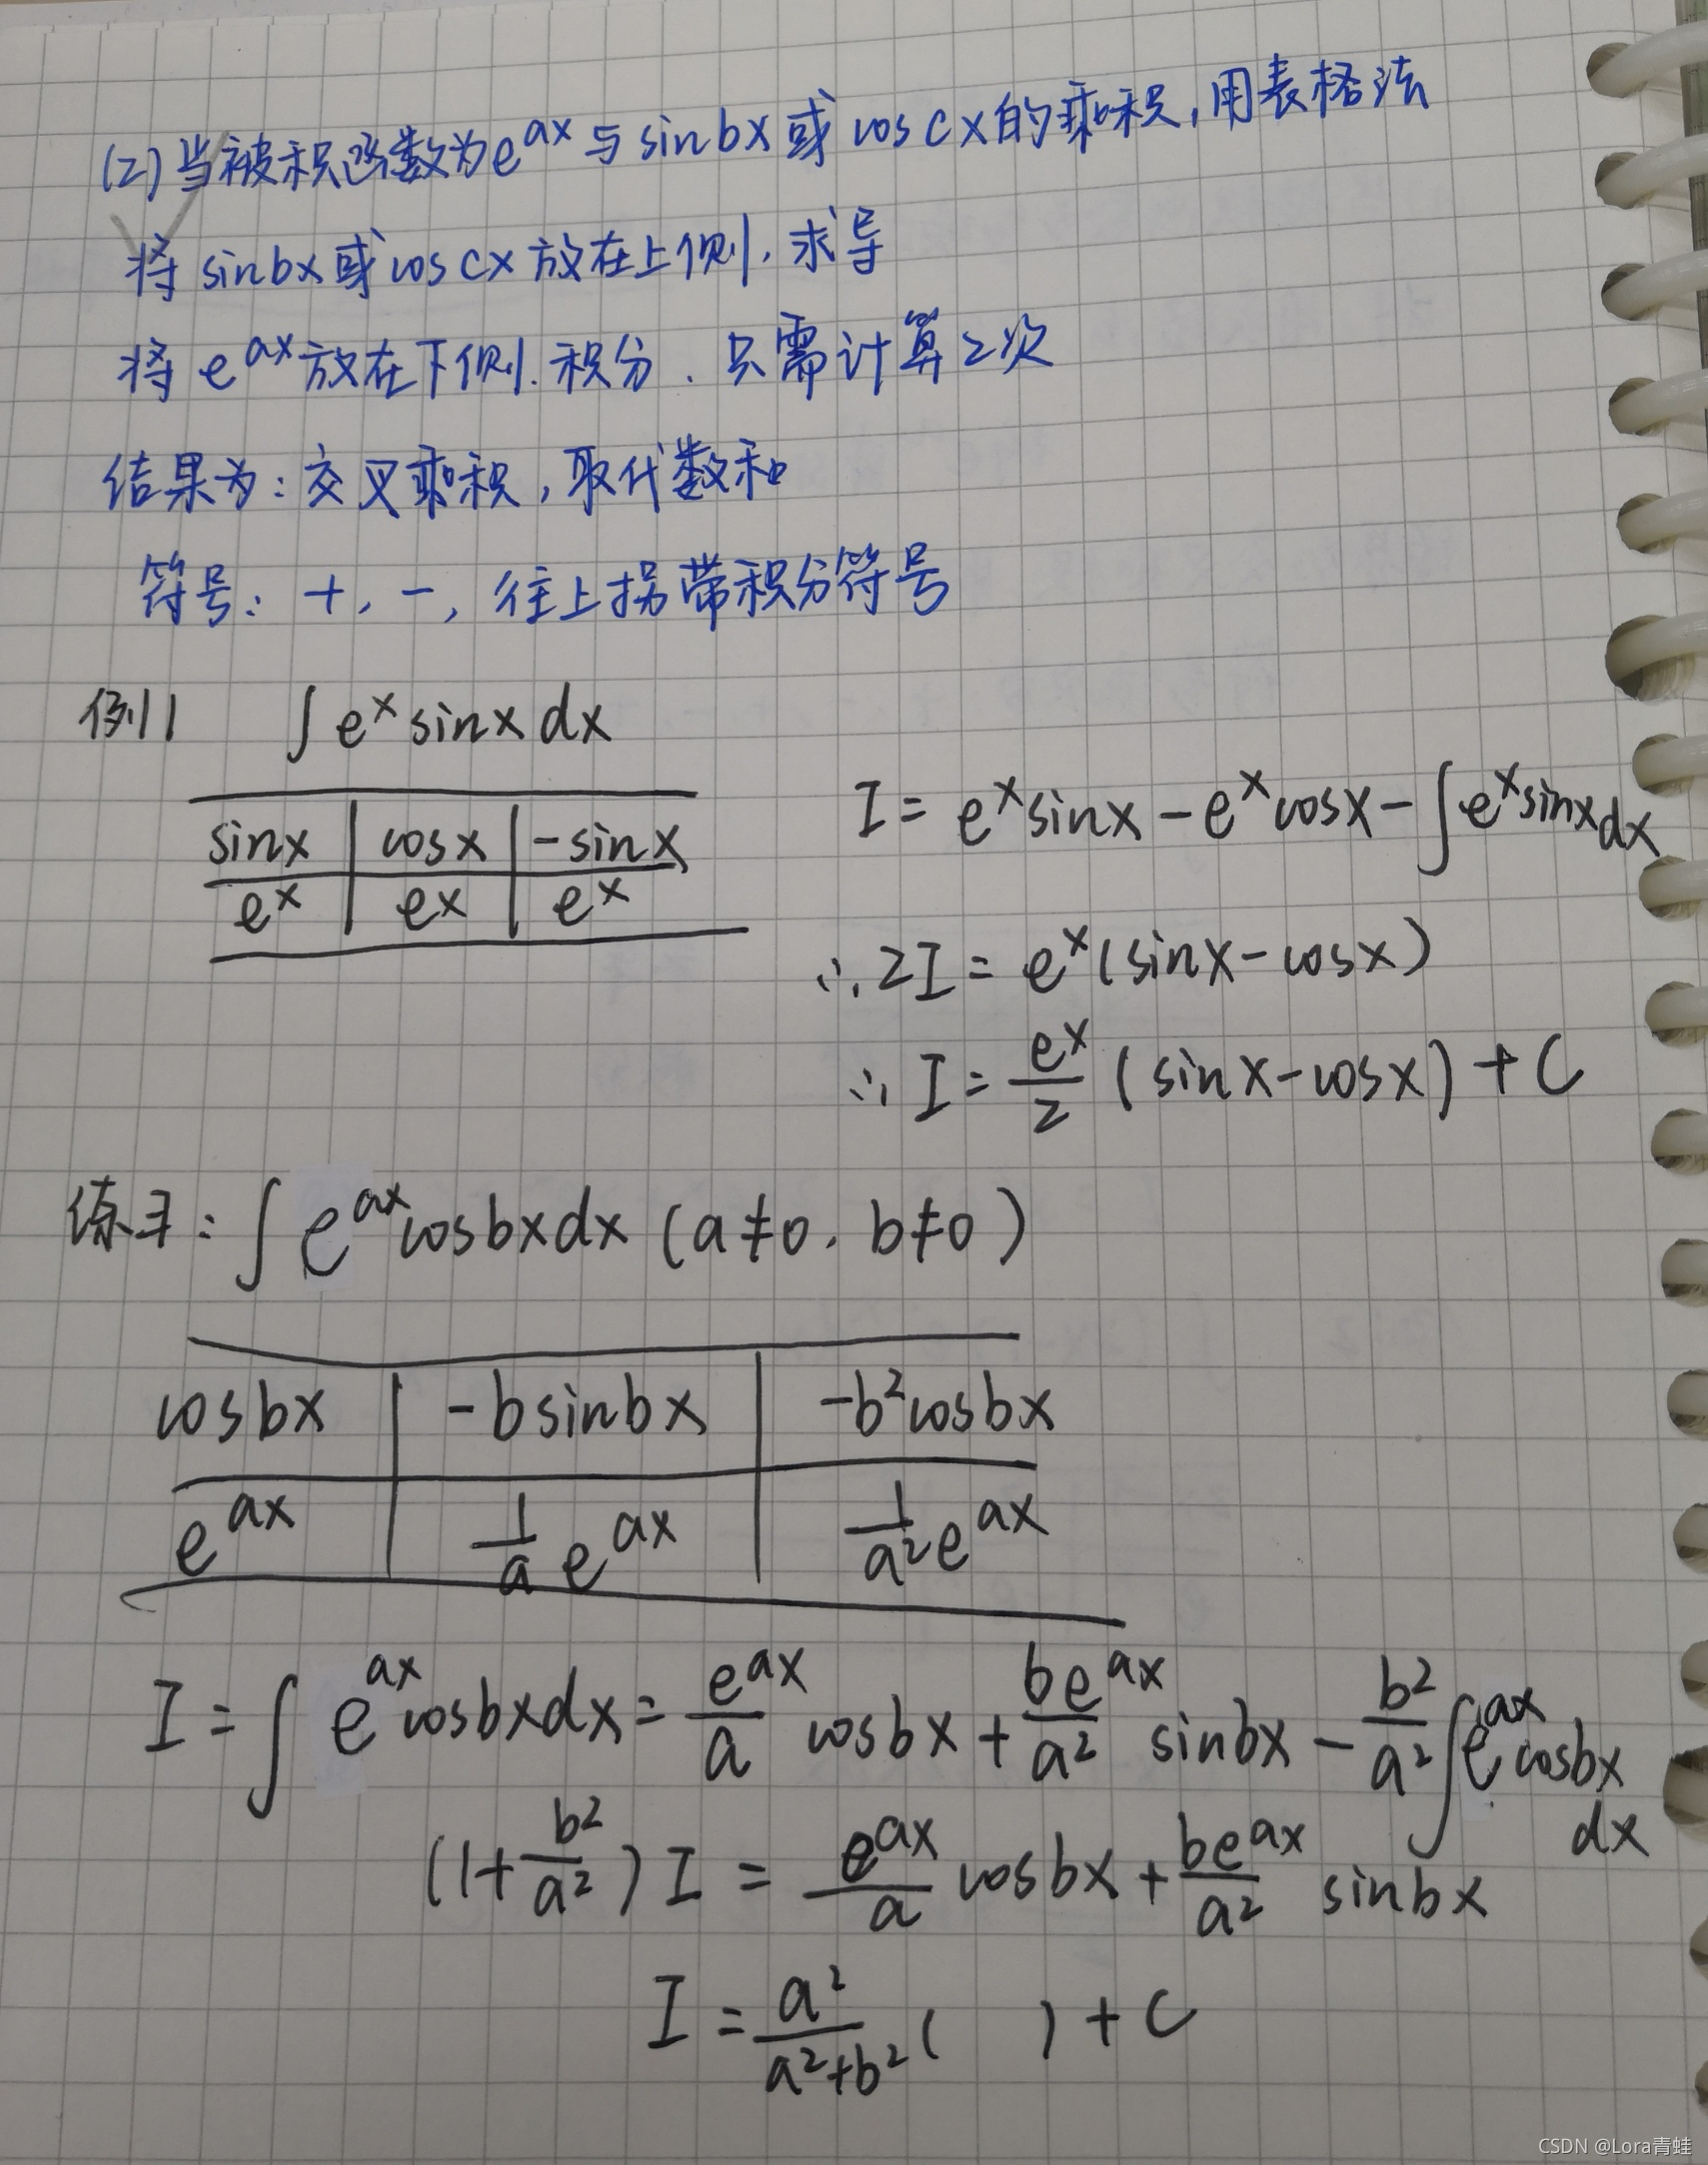 (2)当被积函数为e^{ax}与sinbx或cos cx的乘积,用表格法
将sinbx或cos cx放在上侧.求导
将e^{ax}放在下侧.积分.只需计算2次
结果为:交叉乘积,取代数和
符号: +, -, 往上拐带积分符号
例1 ∫e^x sinx dx
sinx | cosx | -sinx
e^x | e^x | e^x
I = e^x sinx - e^x cosx - ∫e^x sinx dx
∴ 2I = e^x(sinx - cosx)
∴ I = \frac{e^x}{2}(sinx - cosx) + C
练习: ∫e^{ax}cosbxdx (a≠0. b≠0)
cosbx | -bsinbx | -b²cosbx
e^{ax} | \frac{1}{a}e^{ax} | \frac{1}{a²}e^{ax}
I = ∫e^{ax}cosbxdx = \frac{e^{ax}}{a}cosbx + \frac{be^{ax}}{a²}sinbx - \frac{b²}{a²}∫e^{ax}cosbx dx
(1+\frac{b²}{a²})I = \frac{e^{ax}}{a}cosbx + \frac{be^{ax}}{a²}sinbx
I = \frac{a²}{a²+b²}( ) + C
CSDN @Lora青蛙